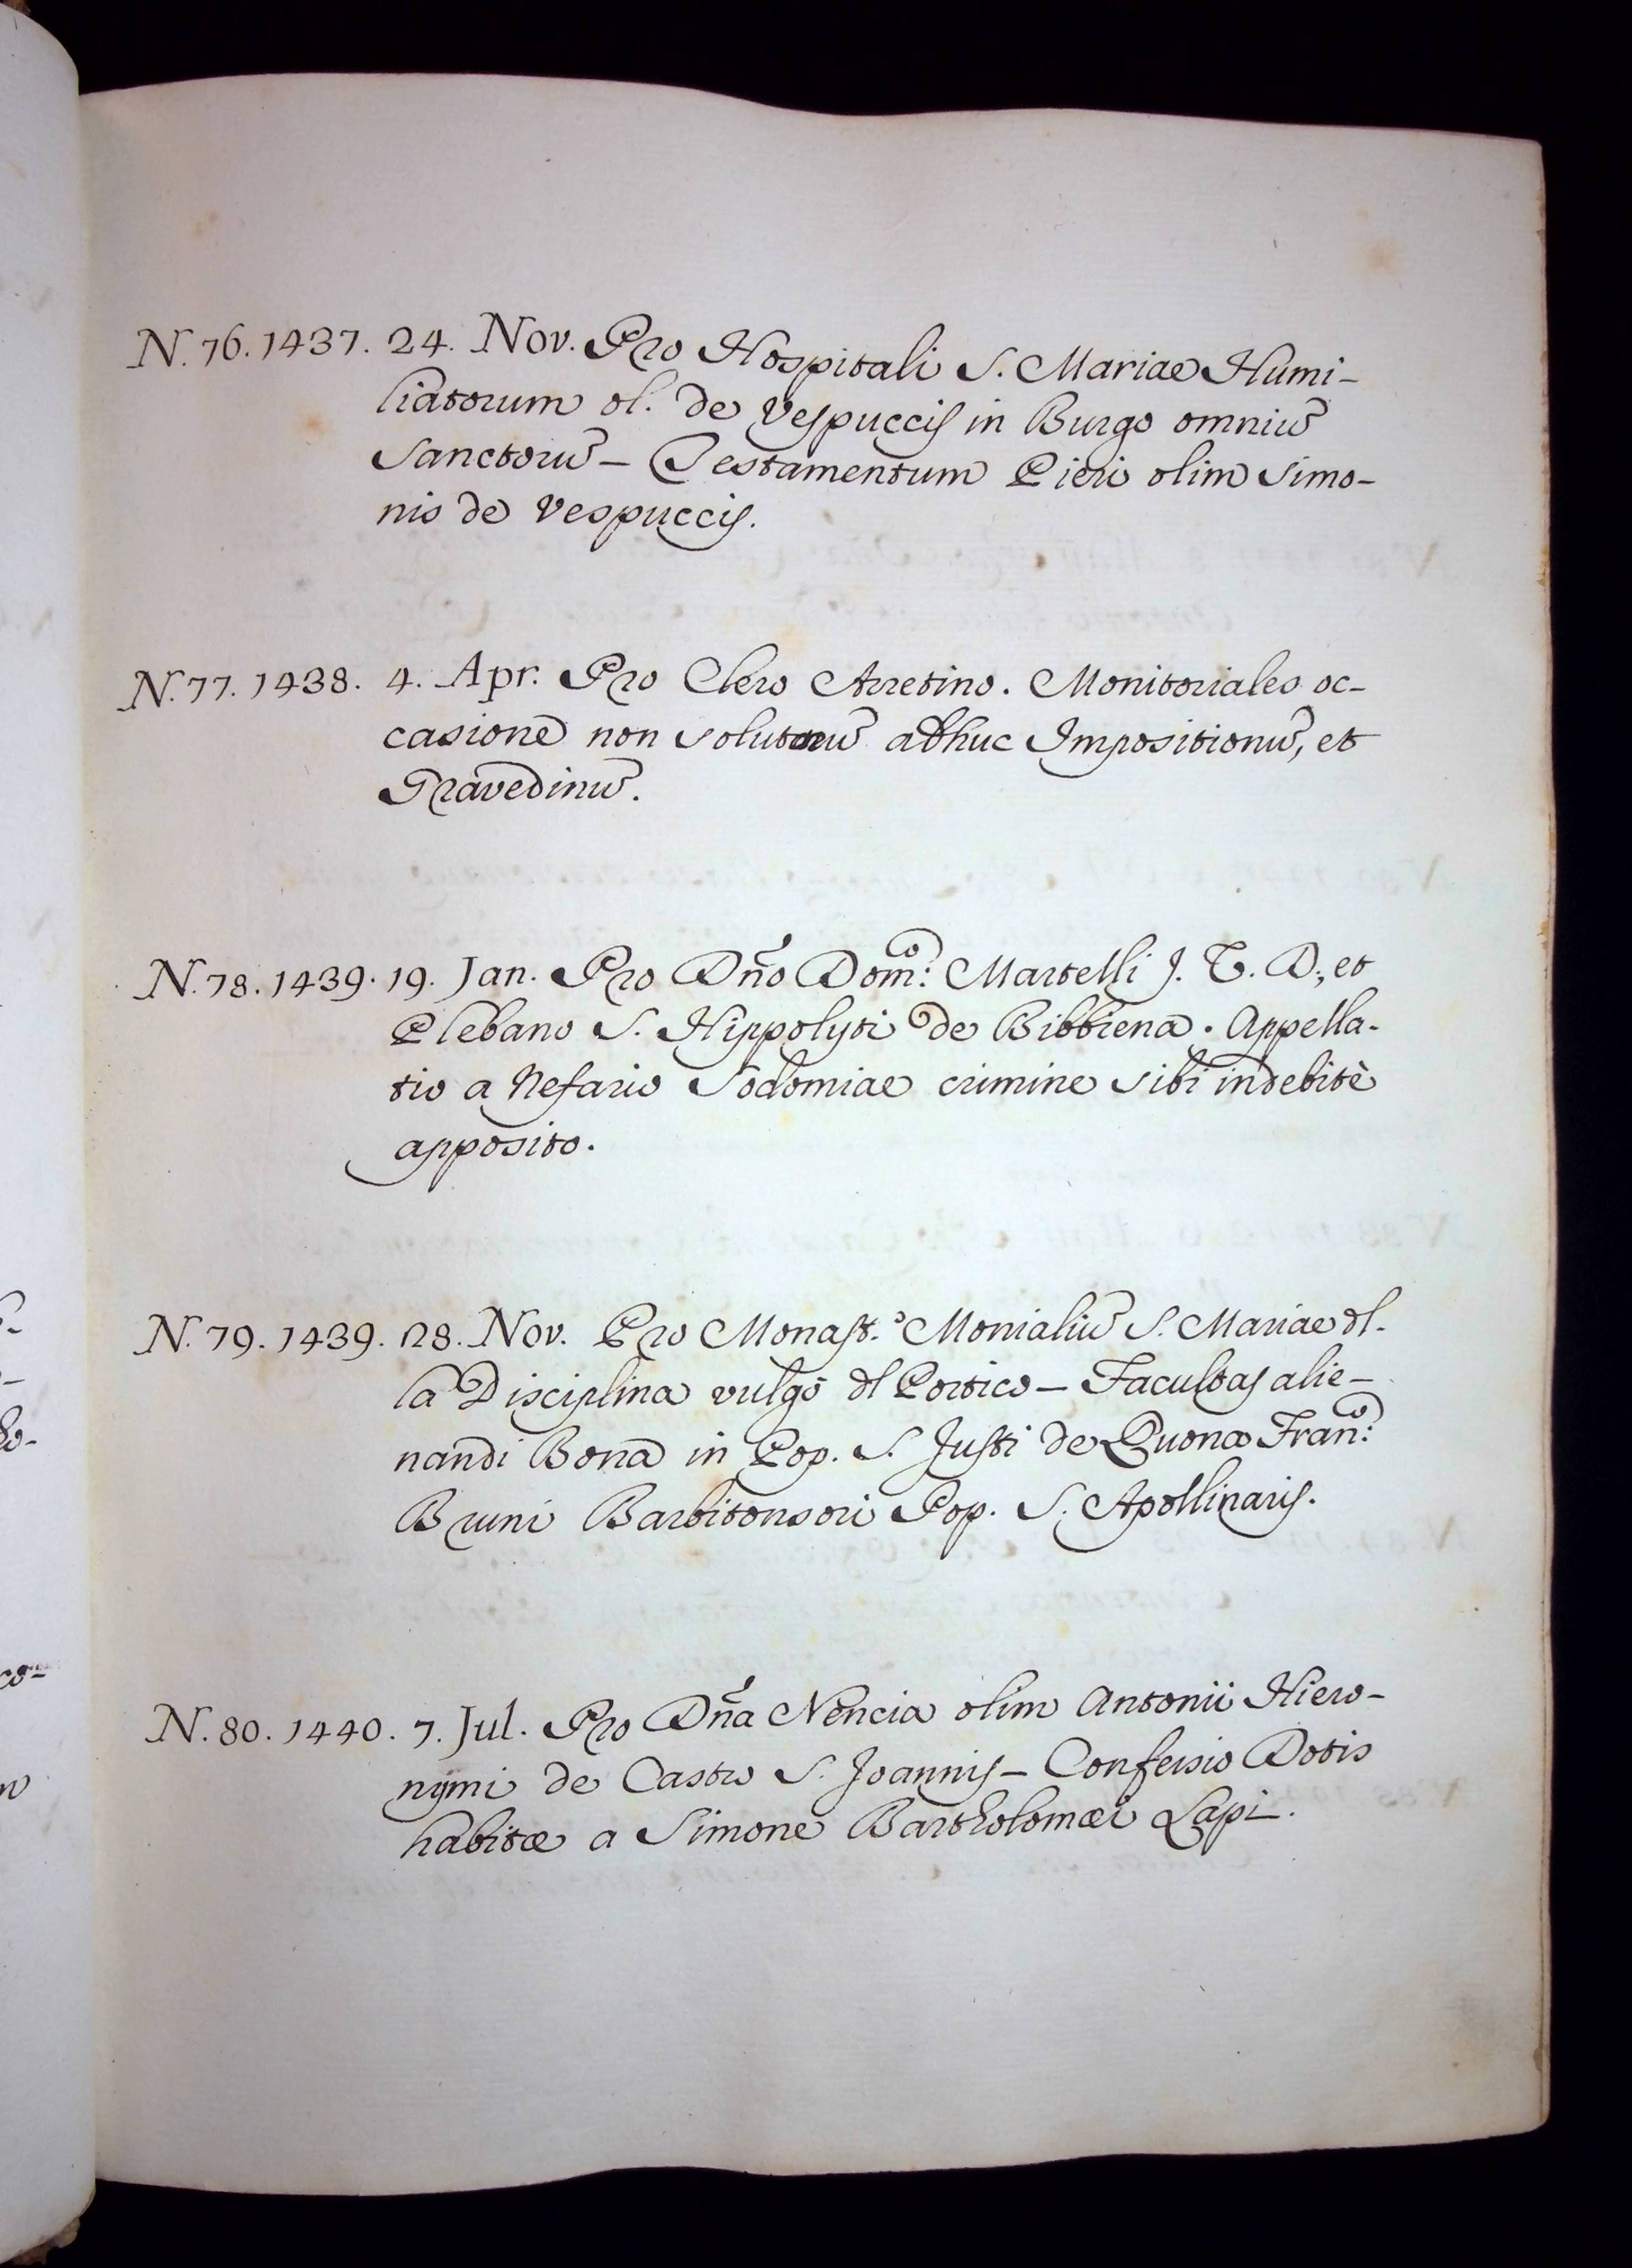 N. 76. 1437. 24. Nov. Pro Hospitali S. Mariae Humi-
liatorum ol. de Vespuccis in Burgo omniū
Sanctorū - Testamentum Pieri olim Simo-
nis de Vespuccis.
N. 77. 1438. 4. Apr. Pro Clero Arretino. Monitoriales oc-
casione non solutarū adhuc Impositionū, et
Gravedinū.
N. 78. 1439. 19. Jan. Pro Dn̄o Dom:co Martelli J. V. D., et
Plebano S. Hippolyti de Bibbiena. Appella-
tio a Nefario Sodomiae crimine sibi indebitè
apposito.
N. 79. 1439. 28. Nov. Pro Monast.o Monialiū S. Mariae dl-
la Disciplina vulgò dl Portico - Facultas alie-
nandi Bona in Pop. S. Justi de Quona Fran:co
Bruni Barbitonsori Pop. S. Apollinaris.
N. 80. 1440. 7. Jul. Pro Dn̄a Nencia olim Antonii Hiero-
nymi de Castro S. Joannis - Confessio Dotis
habitæ a Simone Bartholomæi Lapi.